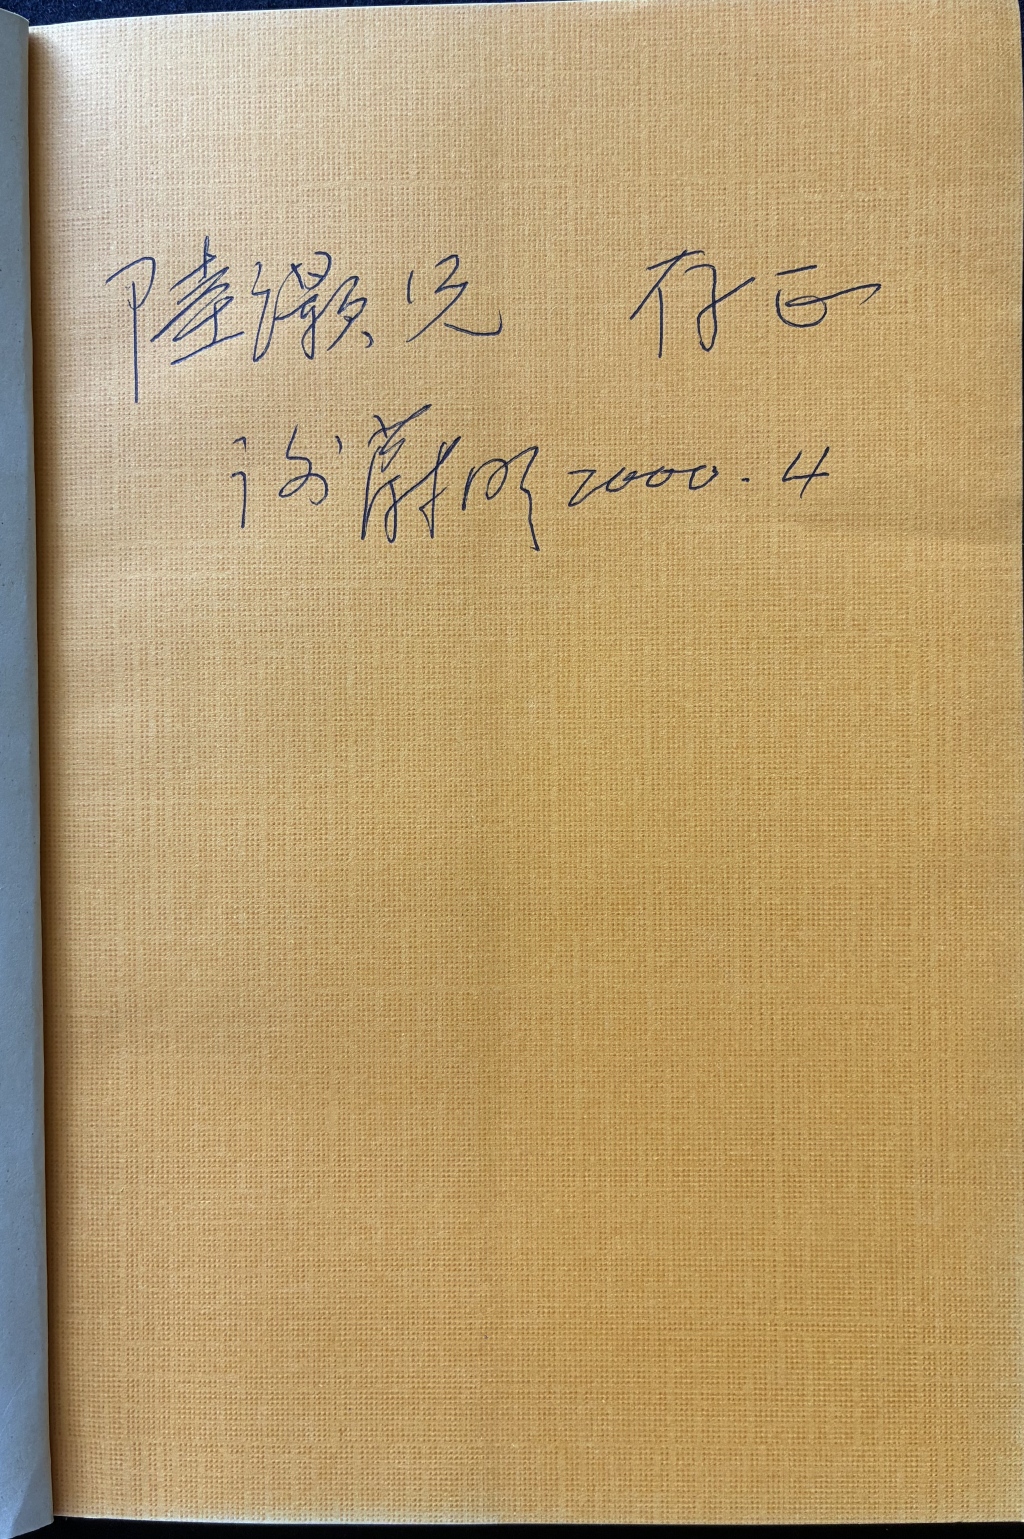 陸灝兄 存正
谢蔚明 2000.4